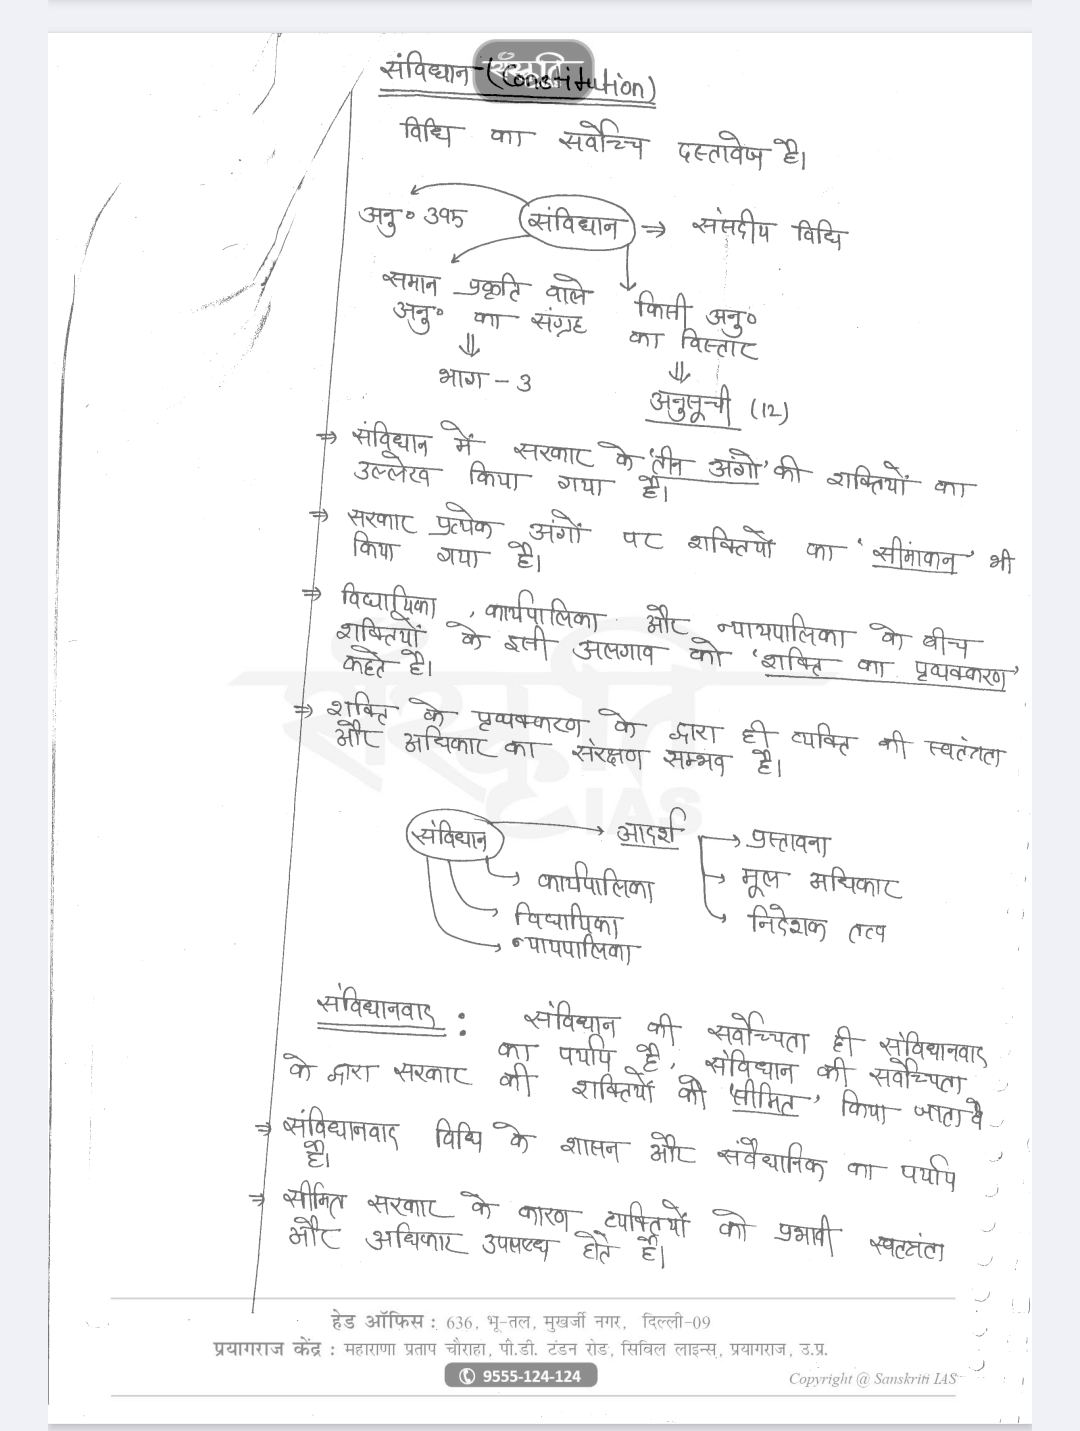 संविधान-(Constitution)
संस्कृति
विधि का सर्वोच्च दस्तावेज है।
अनु० 395 संविधान ⇒ संसदीय विधि
समान प्रकृति वाले
अनु० का संग्रह
⇓
भाग - 3
किसी अनु०
का विस्तार
⇓
अनुसूची (12)
⇒ संविधान में सरकार के 'तीन अंगो' की शक्तियों का
उल्लेख किया गया है।
⇒ सरकार प्रत्येक अंगों पर शक्तियों का 'सीमांकन' भी
किया गया है।
⇒ विधायिका, कार्यपालिका और न्यायपालिका के बीच
शक्तियों के इसी अलगाव को 'शक्ति का पृथ्यक्करण'
कहते है।
⇒ शक्ति के पृथ्यक्करण के द्वारा ही व्यक्ति की स्वतंत्रता
और अधिकार का संरक्षण सम्भव है।
संस्कृति
IAS
संविधान → आदर्श → प्रस्तावना
→ मूल अधिकार
→ निदेशक तत्व
→ कार्यपालिका
→ विधायिका
→ न्यायपालिका
संविधानवाद : संविधान की सर्वोच्चता ही संविधानवाद
का पर्याय है, संविधान की सर्वोच्चता
के द्वारा सरकार की शक्तियों को 'सीमित' किया जाता है
⇒ संविधानवाद विधि के शासन और संवैधानिक का पर्याय
है।
⇒ सीमित सरकार के कारण व्यक्तियों को प्रभावी स्वतंत्रता
और अधिकार उपलब्ध होते है।
हेड ऑफिस : 636, भू-तल, मुखर्जी नगर, दिल्ली-09
प्रयागराज केंद्र : महाराणा प्रताप चौराहा, पी.डी. टंडन रोड, सिविल लाइन्स, प्रयागराज, उ.प्र.
9555-124-124
Copyright @ Sanskriti IAS